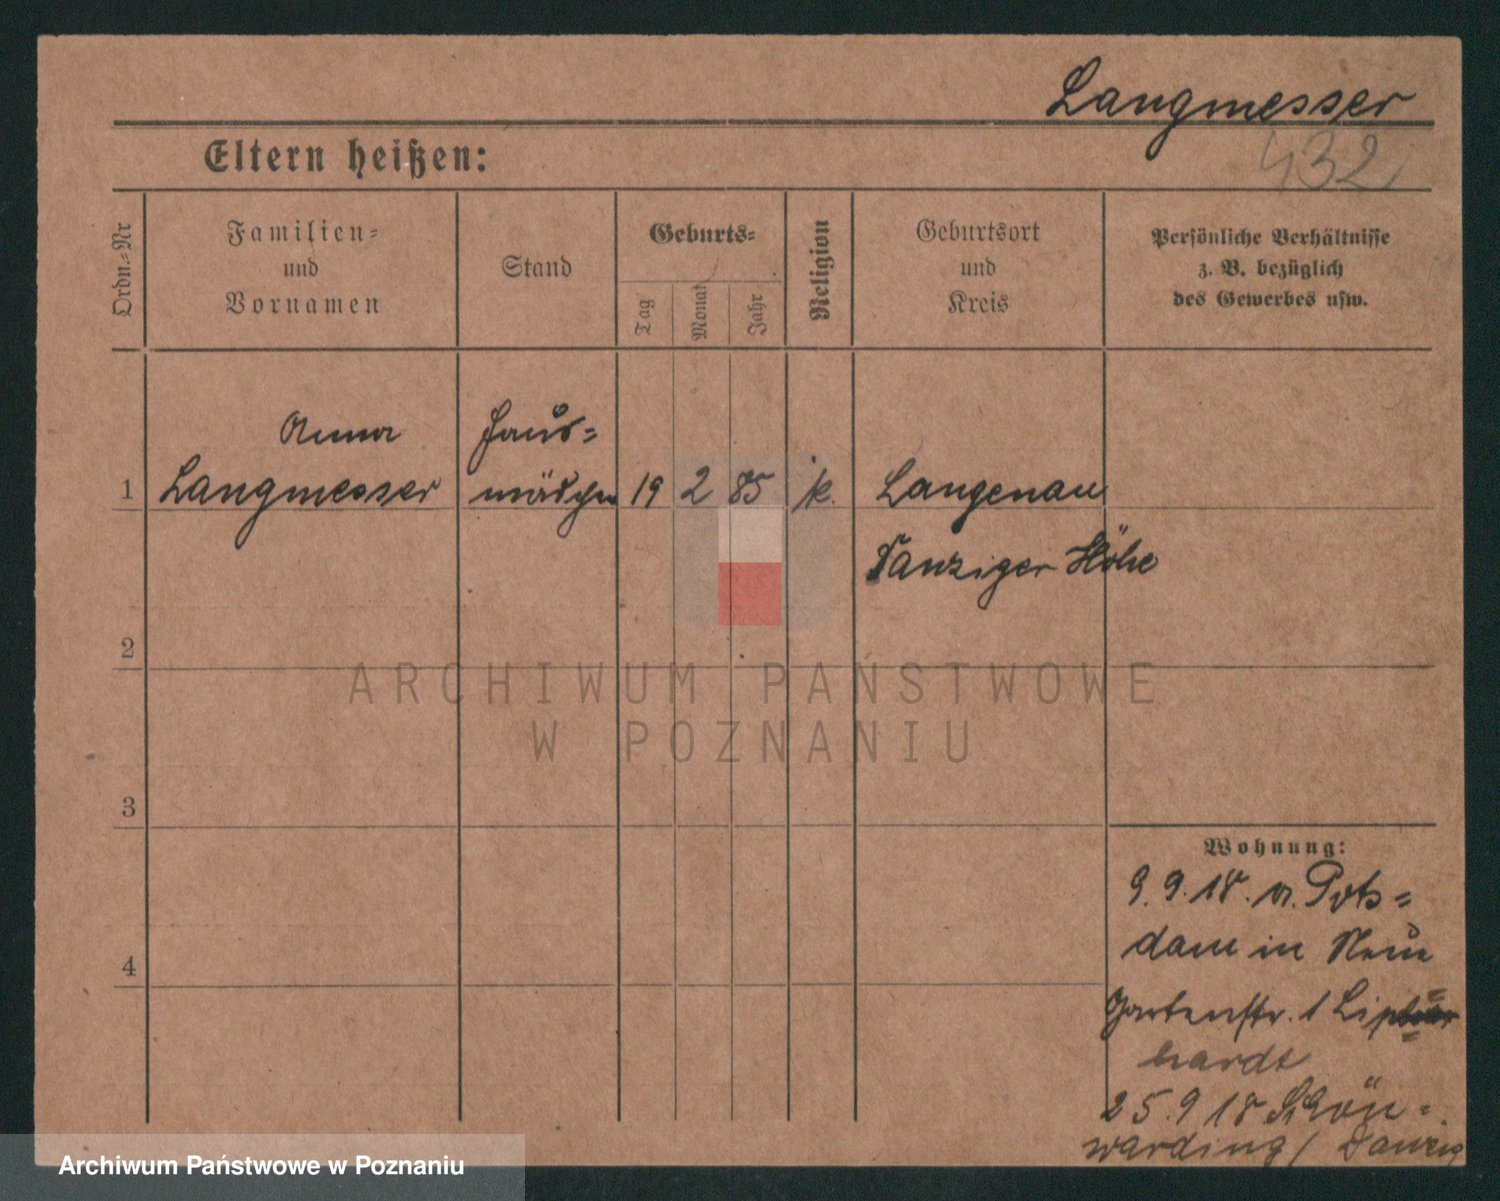 Langmesser
432
Eltern heißen:
Ordn.-Nr
Familien-
und
Vornamen
Stand
Geburts-
Tag
Monat
Jahr
Religion
Geburtsort
und
Kreis
Persönliche Verhältnisse
z. B. bezüglich
des Gewerbes usw.
Anna Haus-
1 Langmesser mädchen 19 2 85 k. Langenau
Danziger Höhe
2
ARCHIWUM PAŃSTWOWE
W POZNANIU
3
Wohnung:
9.9.18. n. Pots-
dam in Neue
4
Gartenstr. 1
hardt
25.9 18 Schön-
warding / Danzig
Archiwum Państwowe w Poznaniu